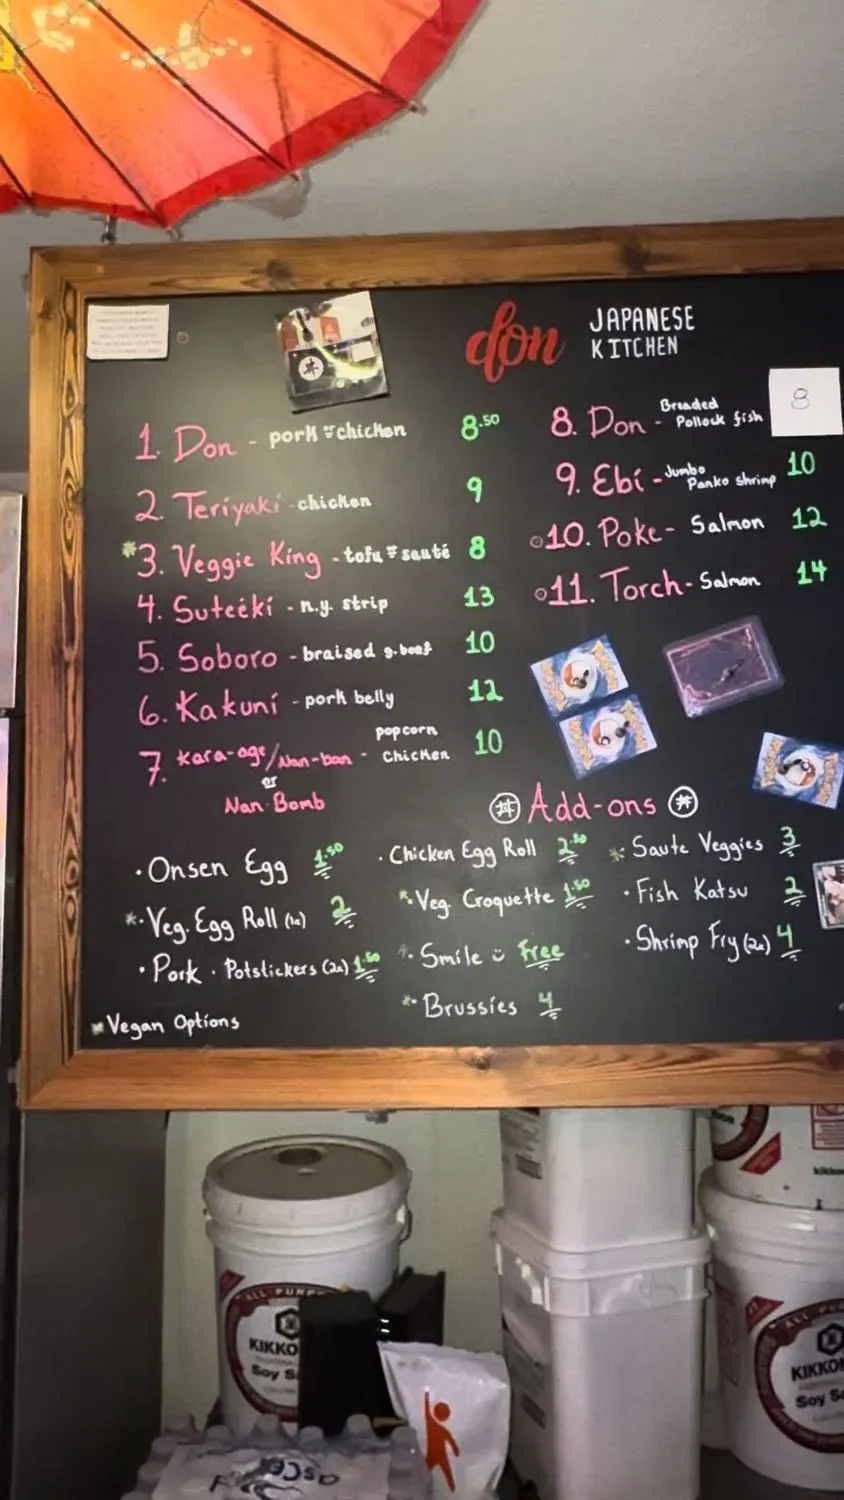 don JAPANESE
KITCHEN
1. Don - pork or chicken 8.50
2. Teriyaki - chicken 9
*3. Veggie King - tofu or sauté 8
4. Suteeki - n.y. strip 13
5. Soboro - braised g. beef 10
6. Kakuni - pork belly 12
7. Kara-age/Nan-ban - popcorn chicken 10
or
Nan-Bomb
8. Don - Breaded Pollock fish 8
9. Ebi - Jumbo Panko shrimp 10
10. Poke - Salmon 12
11. Torch - Salmon 14
Add-ons
• Onsen Egg 1.50
*• Veg. Egg Roll (1x) 2
• Pork • Potstickers (2x) 1.50
• Chicken Egg Roll 2.50
*• Veg. Croquette 1.50
*• Smile Free
*• Brussies 4
*• Saute Veggies 3
• Fish Katsu 2
• Shrimp Fry (2x) 4
* Vegan Options
ALL PURPO
KIKKO
Soy Sa
kikko
ALL PU
KIKKOM
Soy Sa